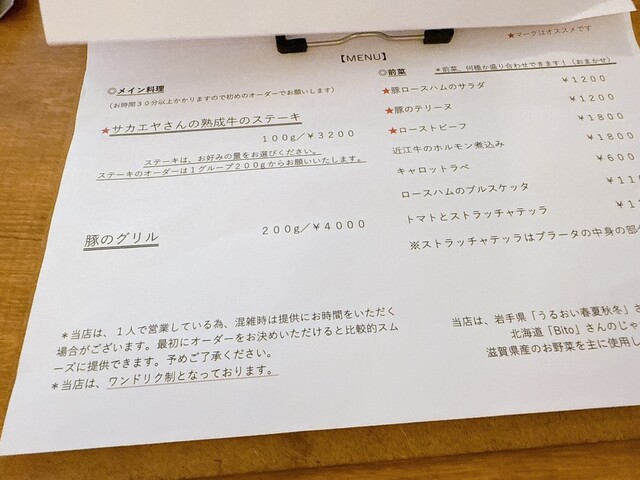 ★マークはオススメです
【MENU】
◎メイン料理
（お時間３０分以上かかりますので初めのオーダーでお願いします）
★サカエヤさんの熟成牛のステーキ
１００g／￥３２００
ステーキは、お好みの量をお選びください。
ステーキのオーダーは１グループ２００gからお願いいたします。
豚のグリル
２００g／￥４０００
◎前菜
＊前菜、何種か盛り合わせできます！（おまかせ）
★豚ロースハムのサラダ ￥１２００
★豚のテリーヌ ￥１２００
★ローストビーフ ￥１８００
近江牛のホルモン煮込み ￥１８００
キャロットラペ ￥６００
ロースハムのブルスケッタ
トマトとストラッチャテッラ
※ストラッチャテッラはブラータの中身の部
＊当店は、１人で営業している為、混雑時は提供にお時間をいただく
場合がございます。最初にオーダーをお決めいただけると比較的スム
ーズに提供できます。予めご了承ください。
＊当店は、ワンドリク制となっております。
当店は、岩手県「うるおい春夏秋冬」さ
北海道「Bito」さんのじゃ
滋賀県産のお野菜を主に使用し